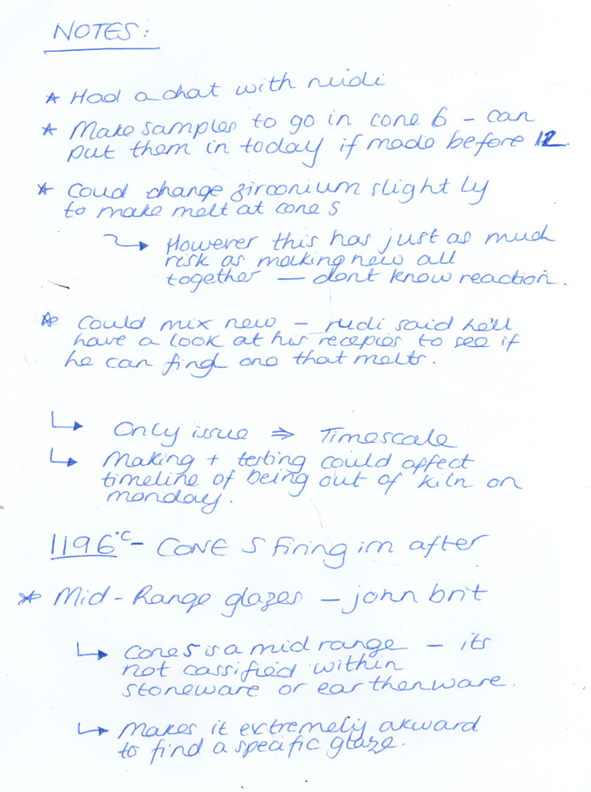 NOTES:
* Had a chat with rudi
* Make samples to go in cone 6 - can
put them in today if made before 12.
* Coud change zirconium slightly
to make melt at cone 5
↳ However this has just as much
risk as making new all
together — dont know reaction.
* Could mix new - rudi said he'll
have a look at his recepies to see if
he can find one that melts.
↳ Only issue ⇒ Timescale
↳ Making + testing could affect
timeline of being out of kiln on
monday.
1196°C - CONE 5 firing im after
* Mid-Range glazes - john brit
↳ Cone 5 is a mid range - its
not cassified within
stoneware or earthenware.
↳ Makes it extremely akward
to find a specific glaze.